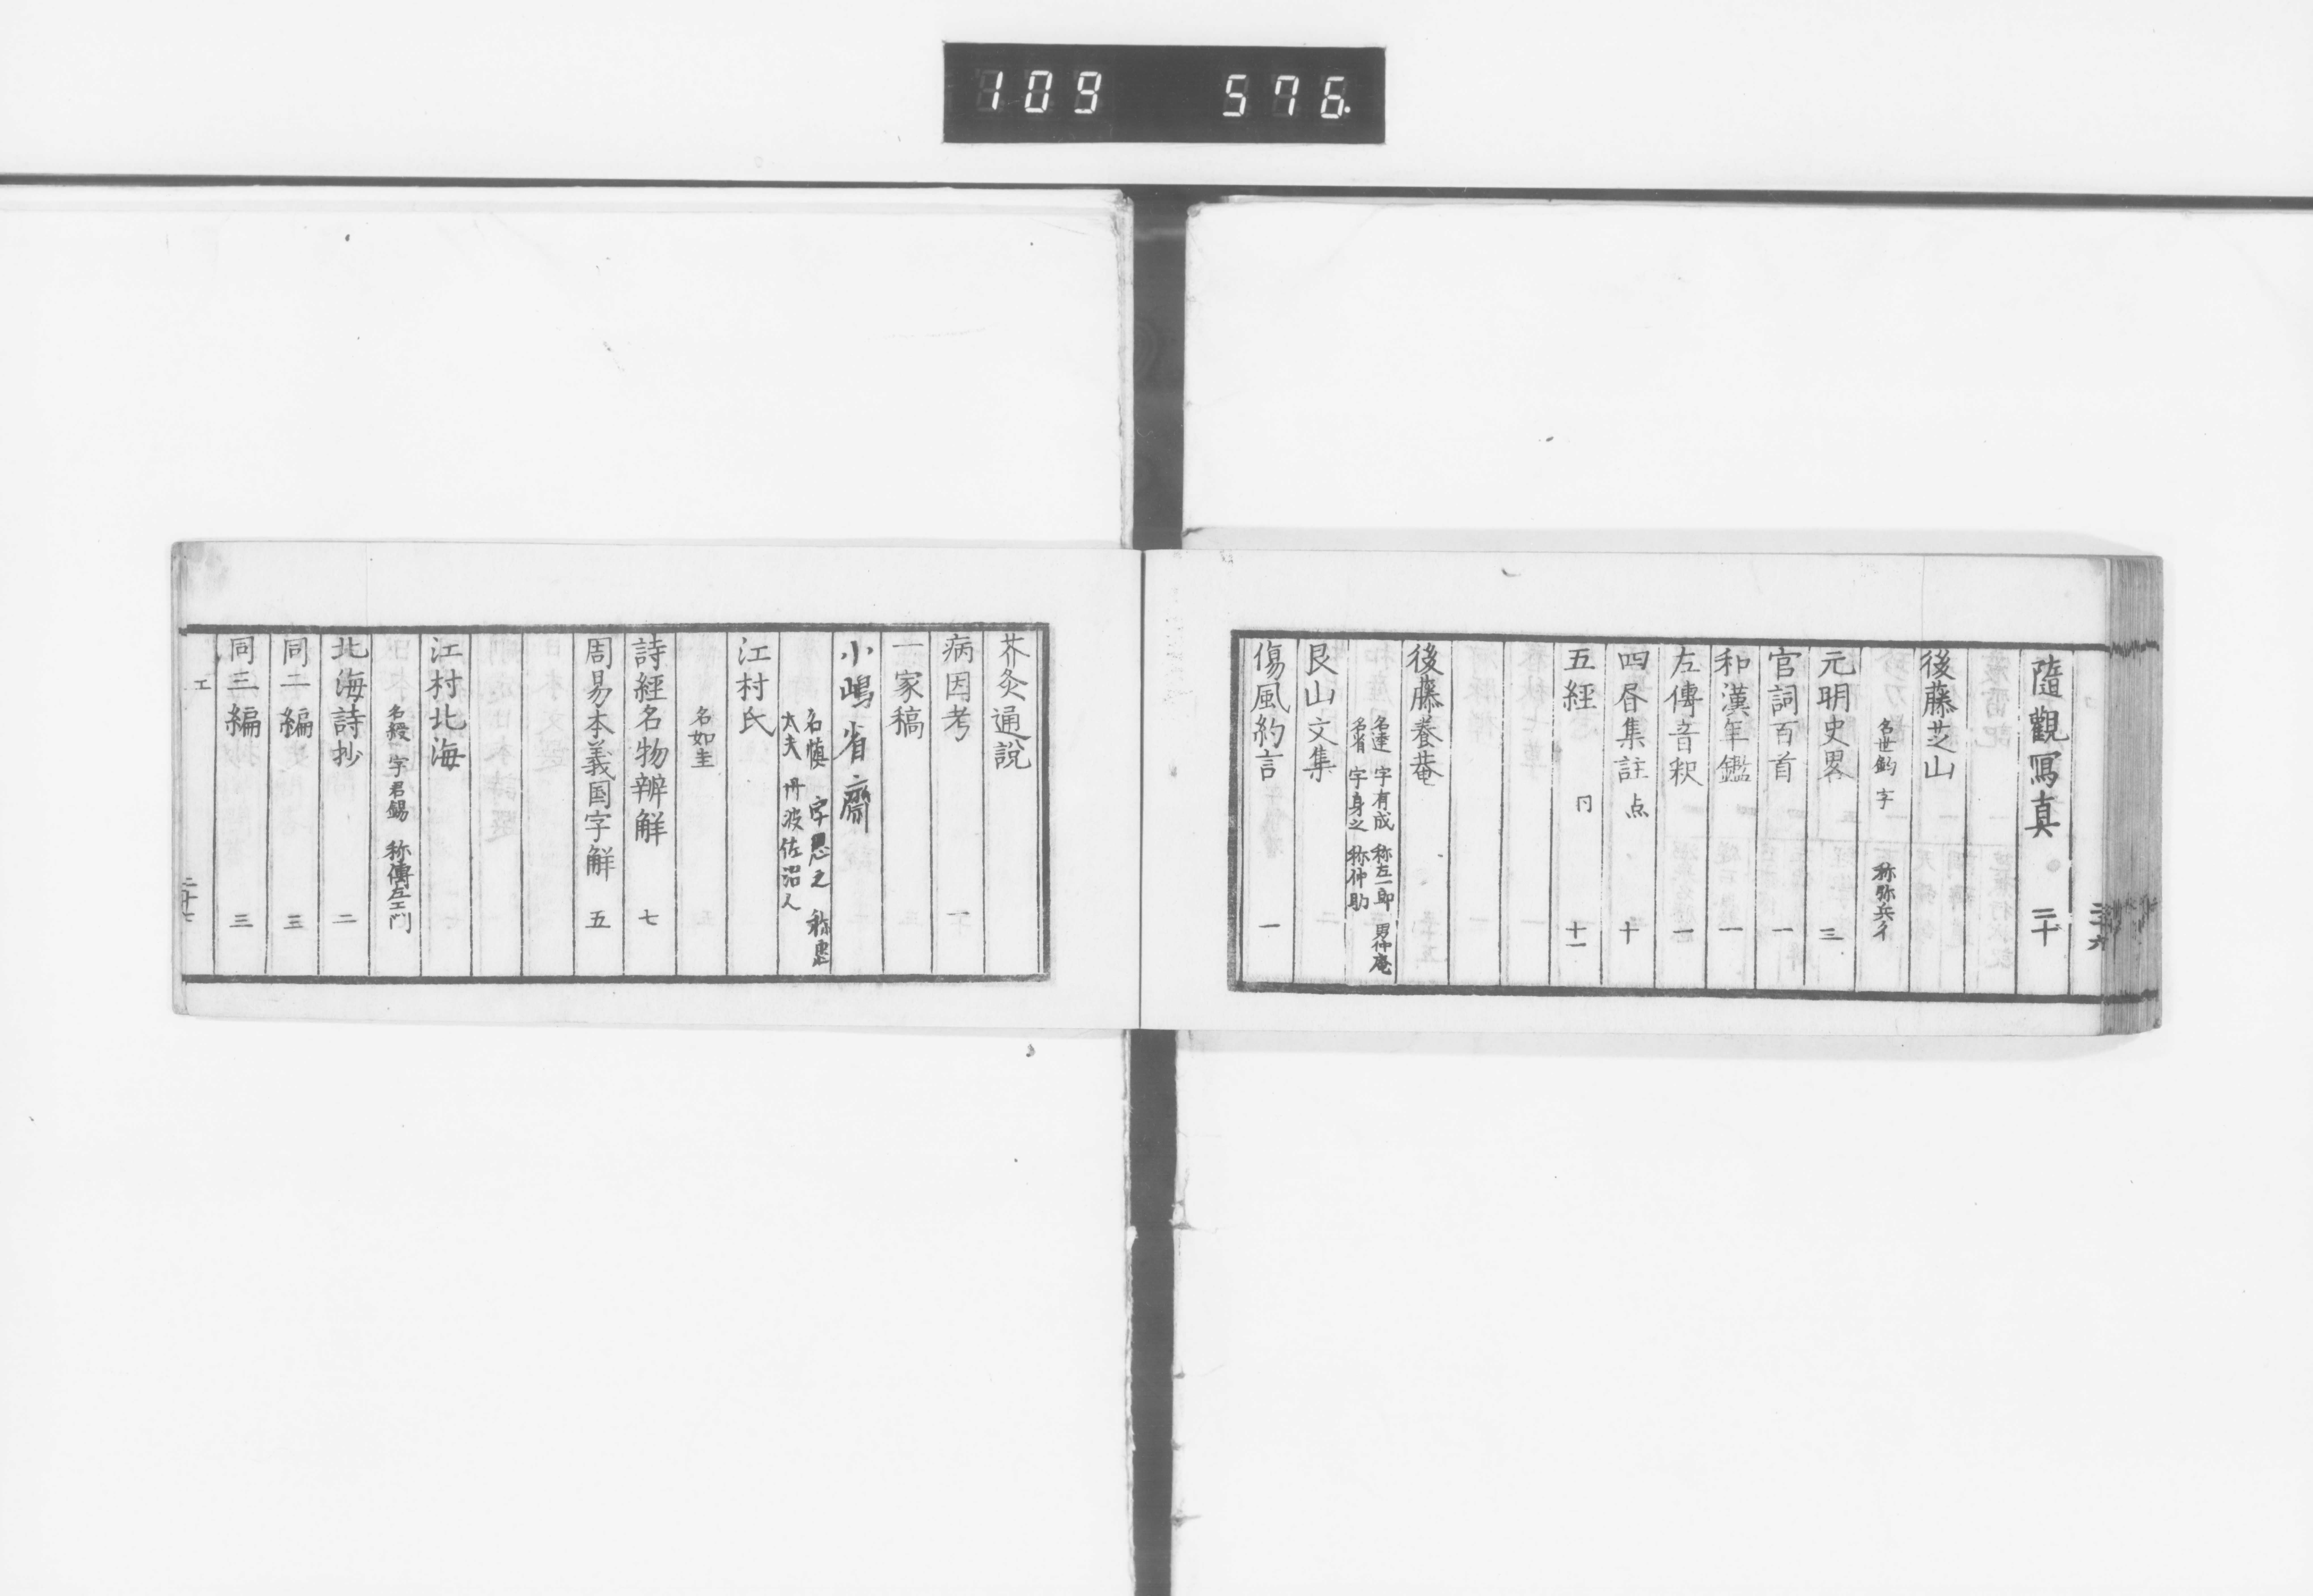 109 576
二十六
隨觀寫真 二十
後藤芝山
名世鈞 字 称弥兵ヱ
元明史畧 三
官詞百首 一
和漢年鑑 一
左傳音釈 一
四昏集註 点 十
五經 同 十一
後藤養菴
名達 字有成 称左一郎 男仲庵
名省 字身之 称仲助
艮山文集
傷風約言 一
芥灸通說
病因考
一家稿
小嶋省齋
名慎 字思之 称
大夫 丹波佐沼人
江村氏
名如圭
詩經名物辨解 七
周易本義国字解 五
江村北海
名綬 字君錫 称傳左エ門
北海詩抄 二
同二編 三
同三編 三
エ
二十七